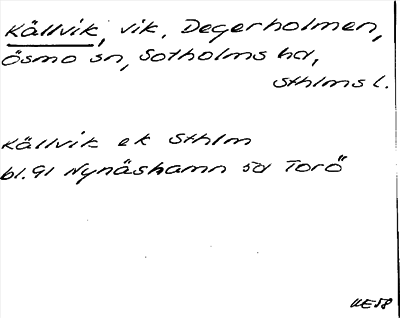 Källvik, vik, Degerholmen,
Ösmo sn, Sotholms hd,
Sthlms l.
Källvik ek Sthlm
bl. 91 Nynäshamn sd Torö
KE58